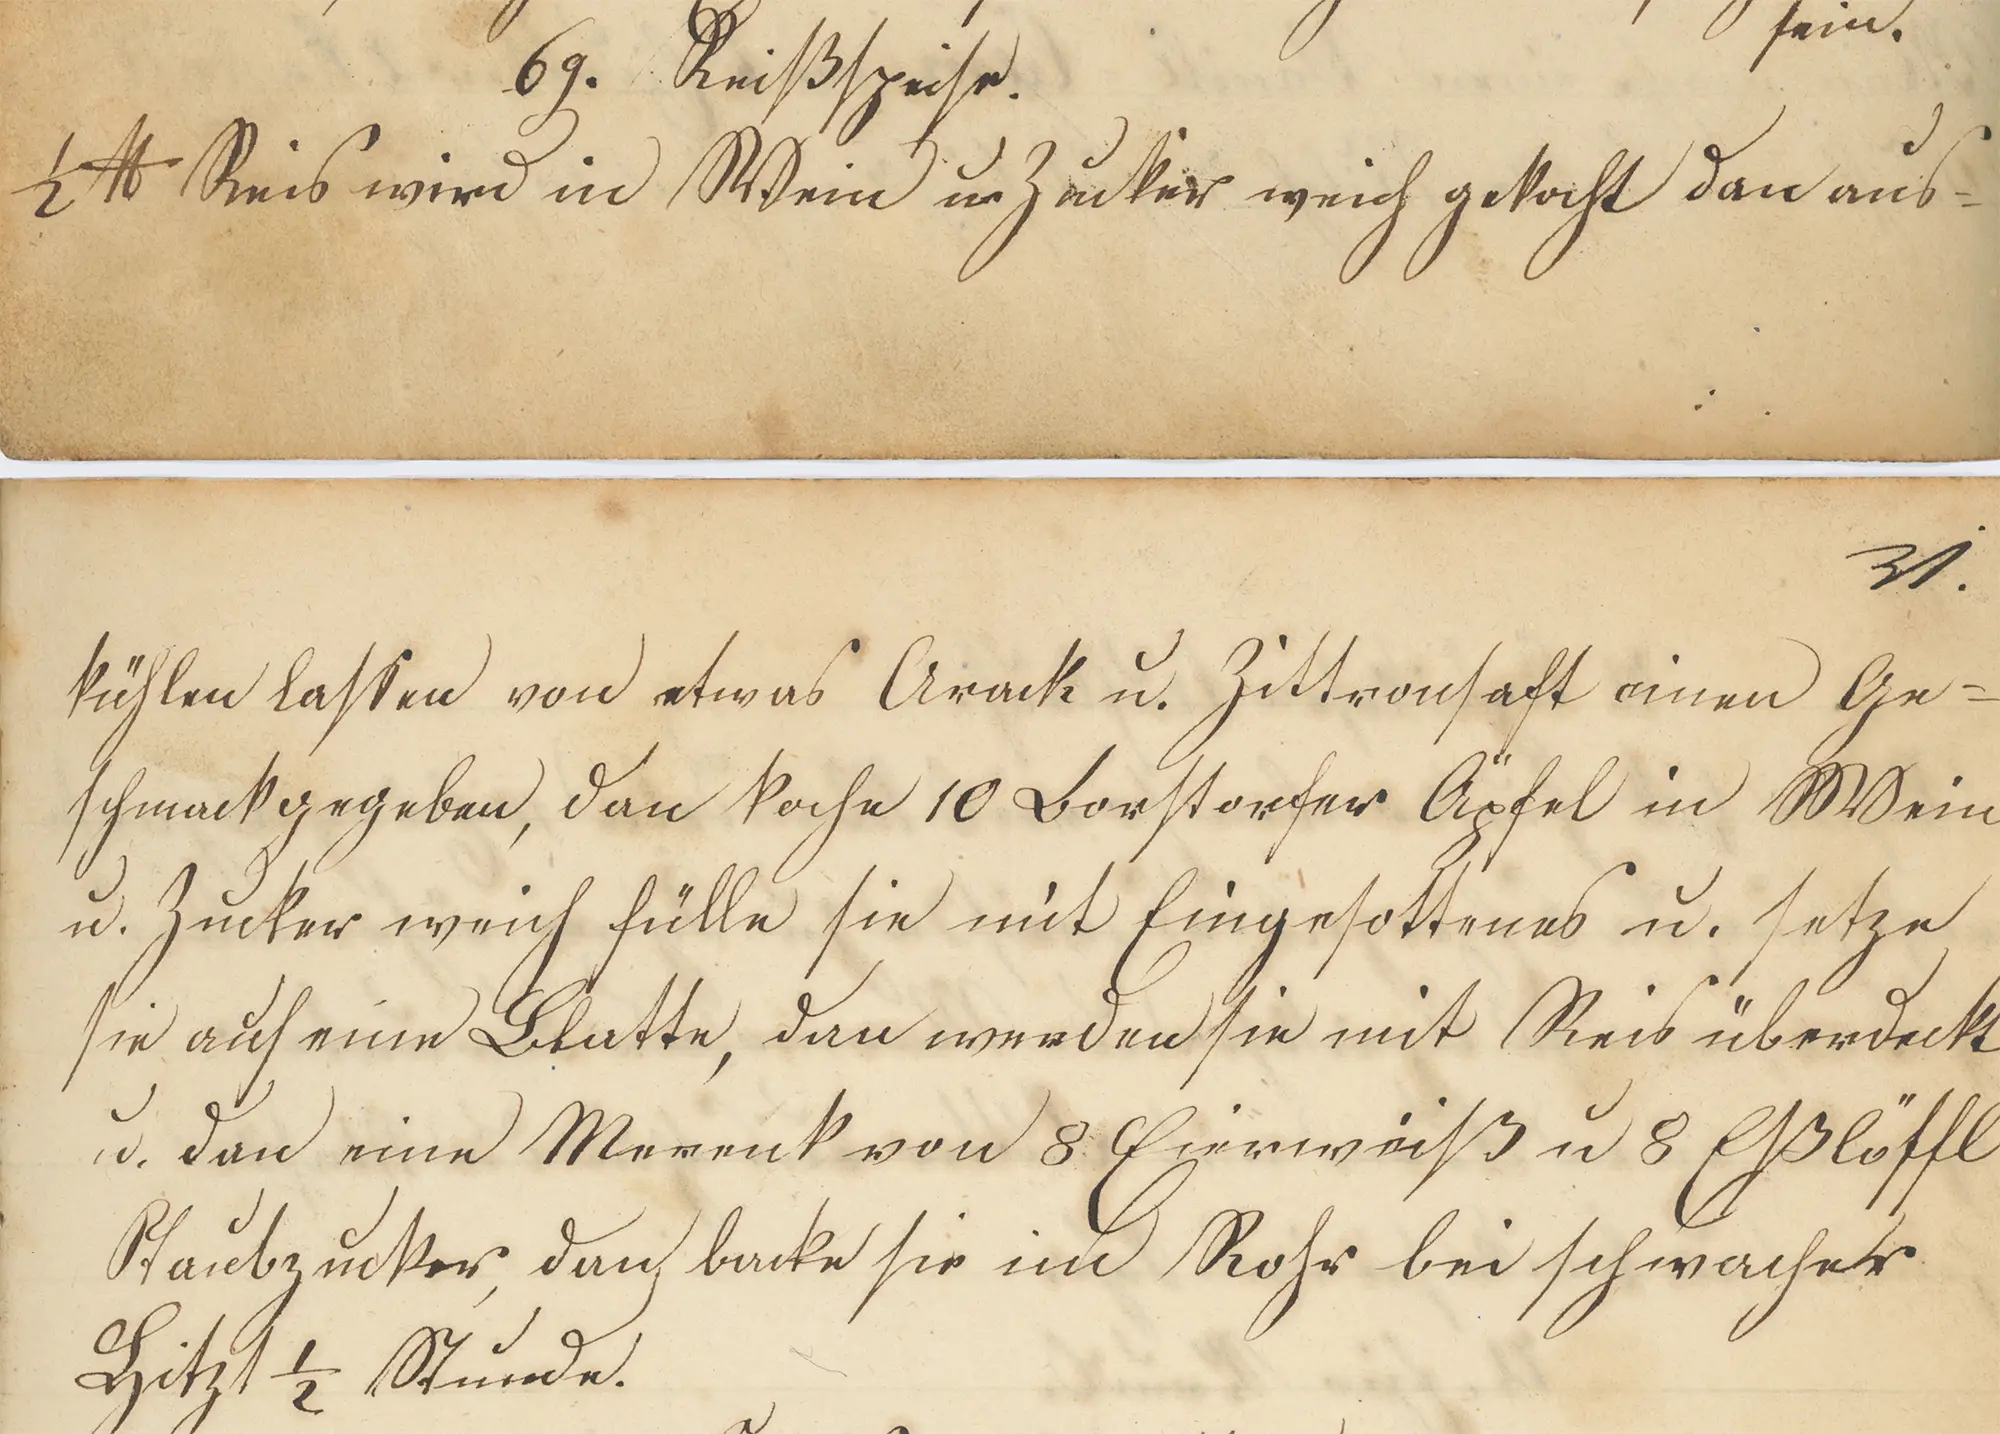 sein.
69. Reißspeise.
½ ℔ Reis wird in Wein u Zucker weich gekocht dan aus=
31.
kühlen lassen von etwas Arack u. Zittronsaft einen Ge=
schmack gegeben, dan koche 10 Borstorfer Äpfel in Wein
u. Zucker weich fülle sie mit Eingesottenes u. setze
sie auf eine Blatte, dan werden sie mit Reis überdeckt
u. dan eine Merenk von 8 Eierweiß u 8 Eßlöffl
Staubzucker, dan backe sie im Rohr bei schwacher
Hitzt ½ Stunde.